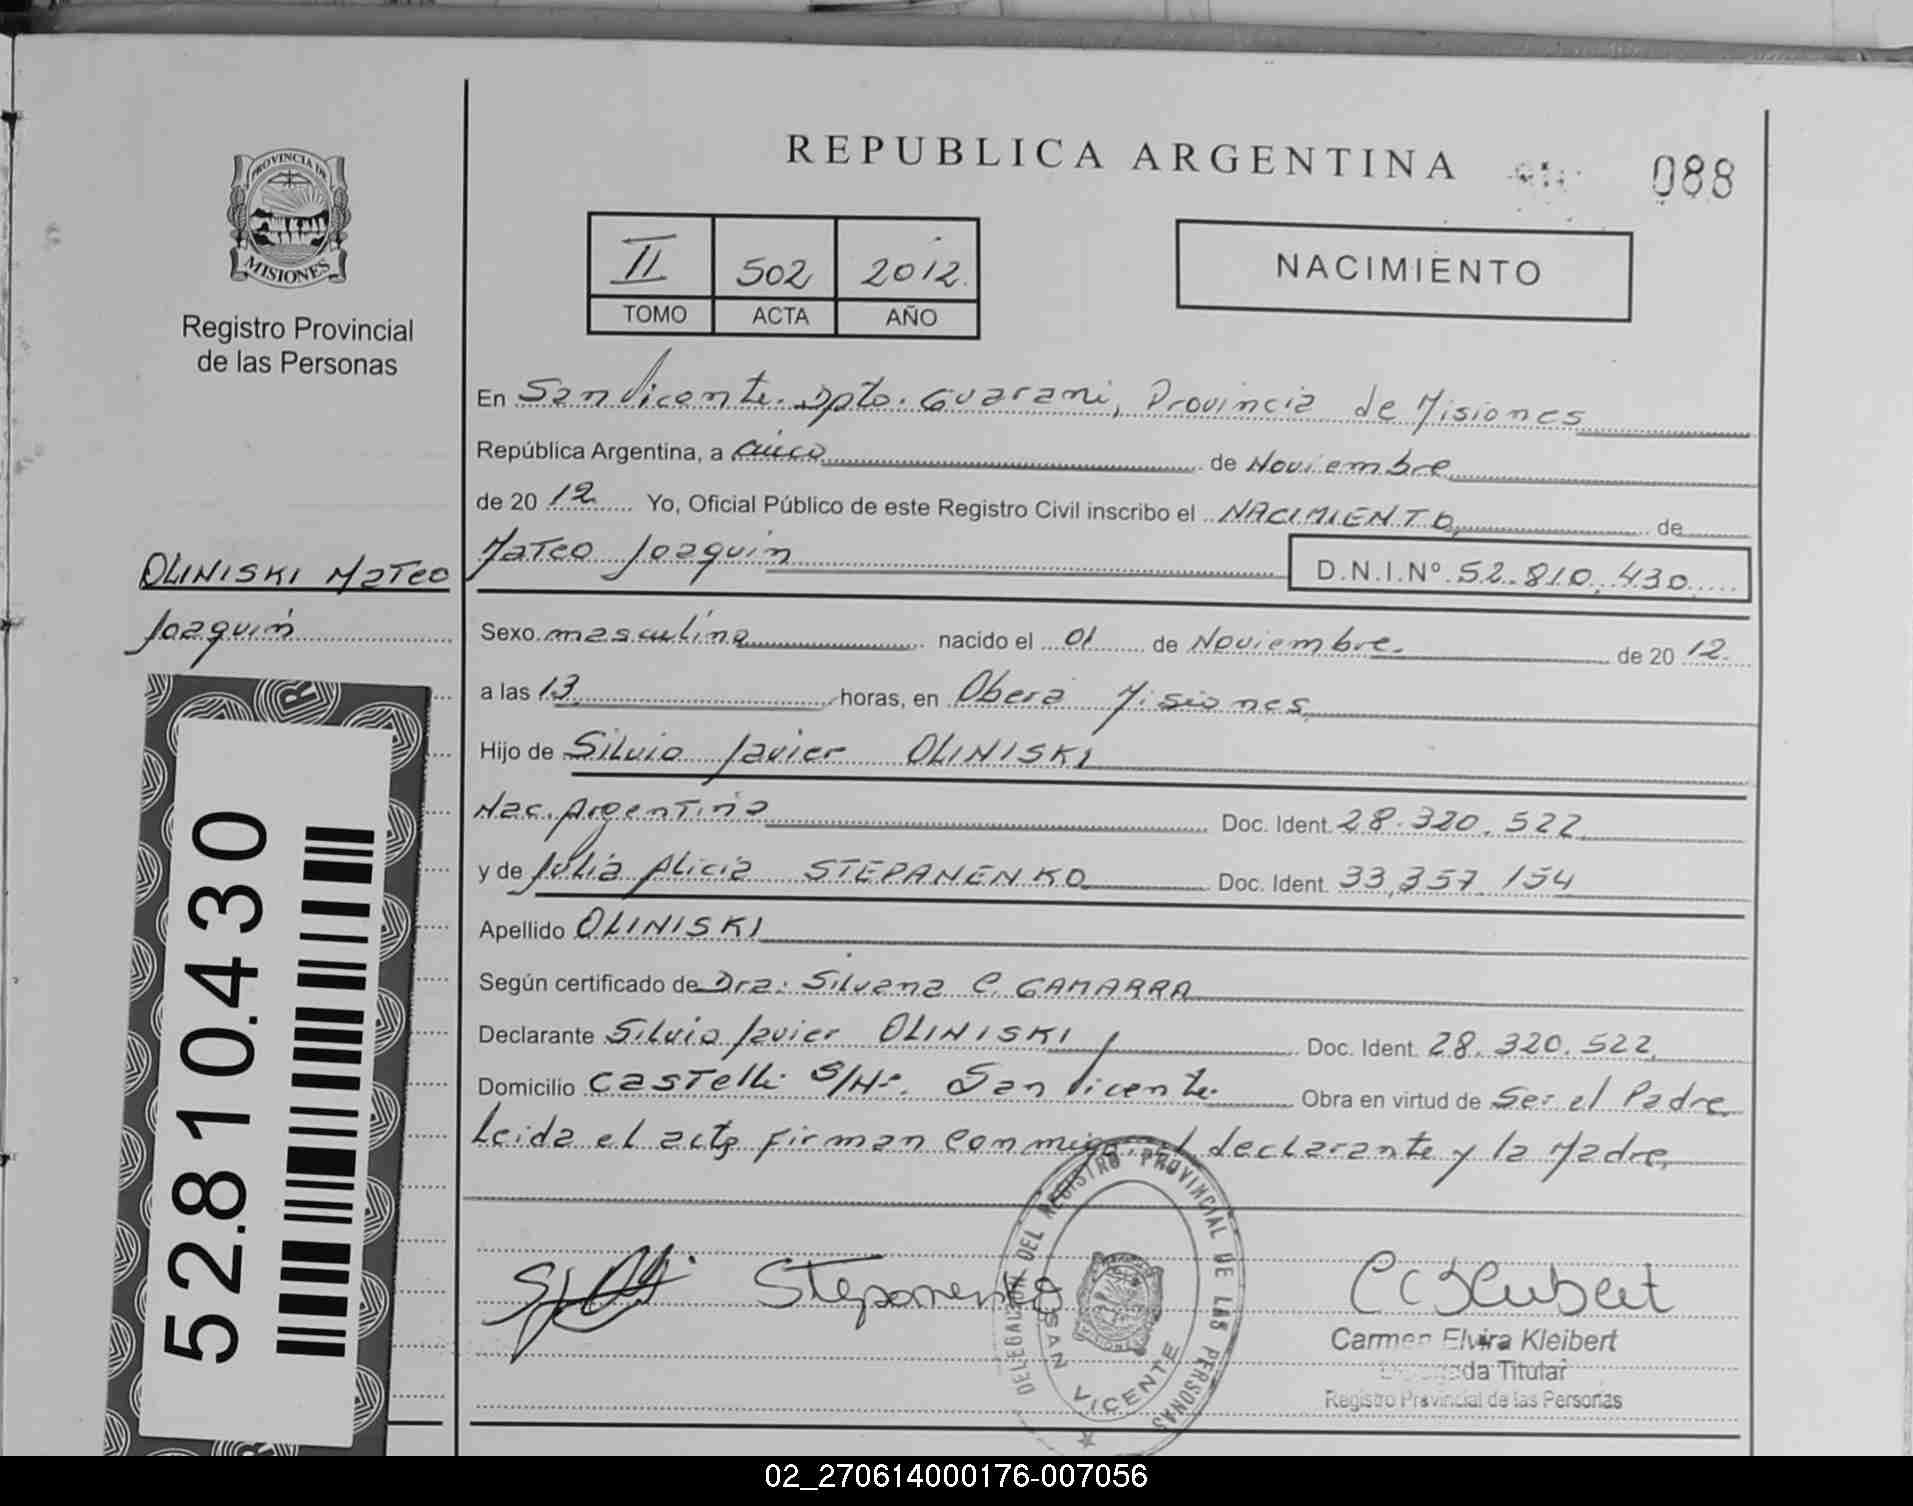 REPUBLICA ARGENTINA
088
PROVINCIA DE
MISIONES
Registro Provincial
de las Personas
II 502 2012.
TOMO ACTA AÑO
NACIMIENTO
En San Vicente. Dpto. Guarani, Provincia de Misiones
República Argentina, a cinco de Noviembre
de 20 12 Yo, Oficial Público de este Registro Civil inscribo el NACIMIENTO de
Mateo Joaquin D.N.I.Nº 52.810.430
OLINISKI Mateo
Joaquin
Sexo masculino nacido el 01 de Noviembre. de 20 12.
a las 13 horas, en Obera Misiones
Hijo de Silvio Javier OLINISKI
Nac. Argentina Doc. Ident. 28.320.522
y de Julia Alicia STEPANENKO Doc. Ident. 33.357.154
Apellido OLINISKI
Según certificado de Dra. Silvana C. GAMARRA
Declarante Silvio Javier OLINISKI Doc. Ident. 28.320.522
Domicilio Castelli S/Nº. San Vicente. Obra en virtud de Ser el Padre
Leida el acta firman conmigo el declarante y la Madre
52.810.430
Stepanenko
DELEGACION DEL REGISTRO PROVINCIAL DE LAS PERSONAS
SAN VICENTE
Carmen Elvira Kleibert
Delegada Titular
Registro Provincial de las Personas
02_270614000176-007056